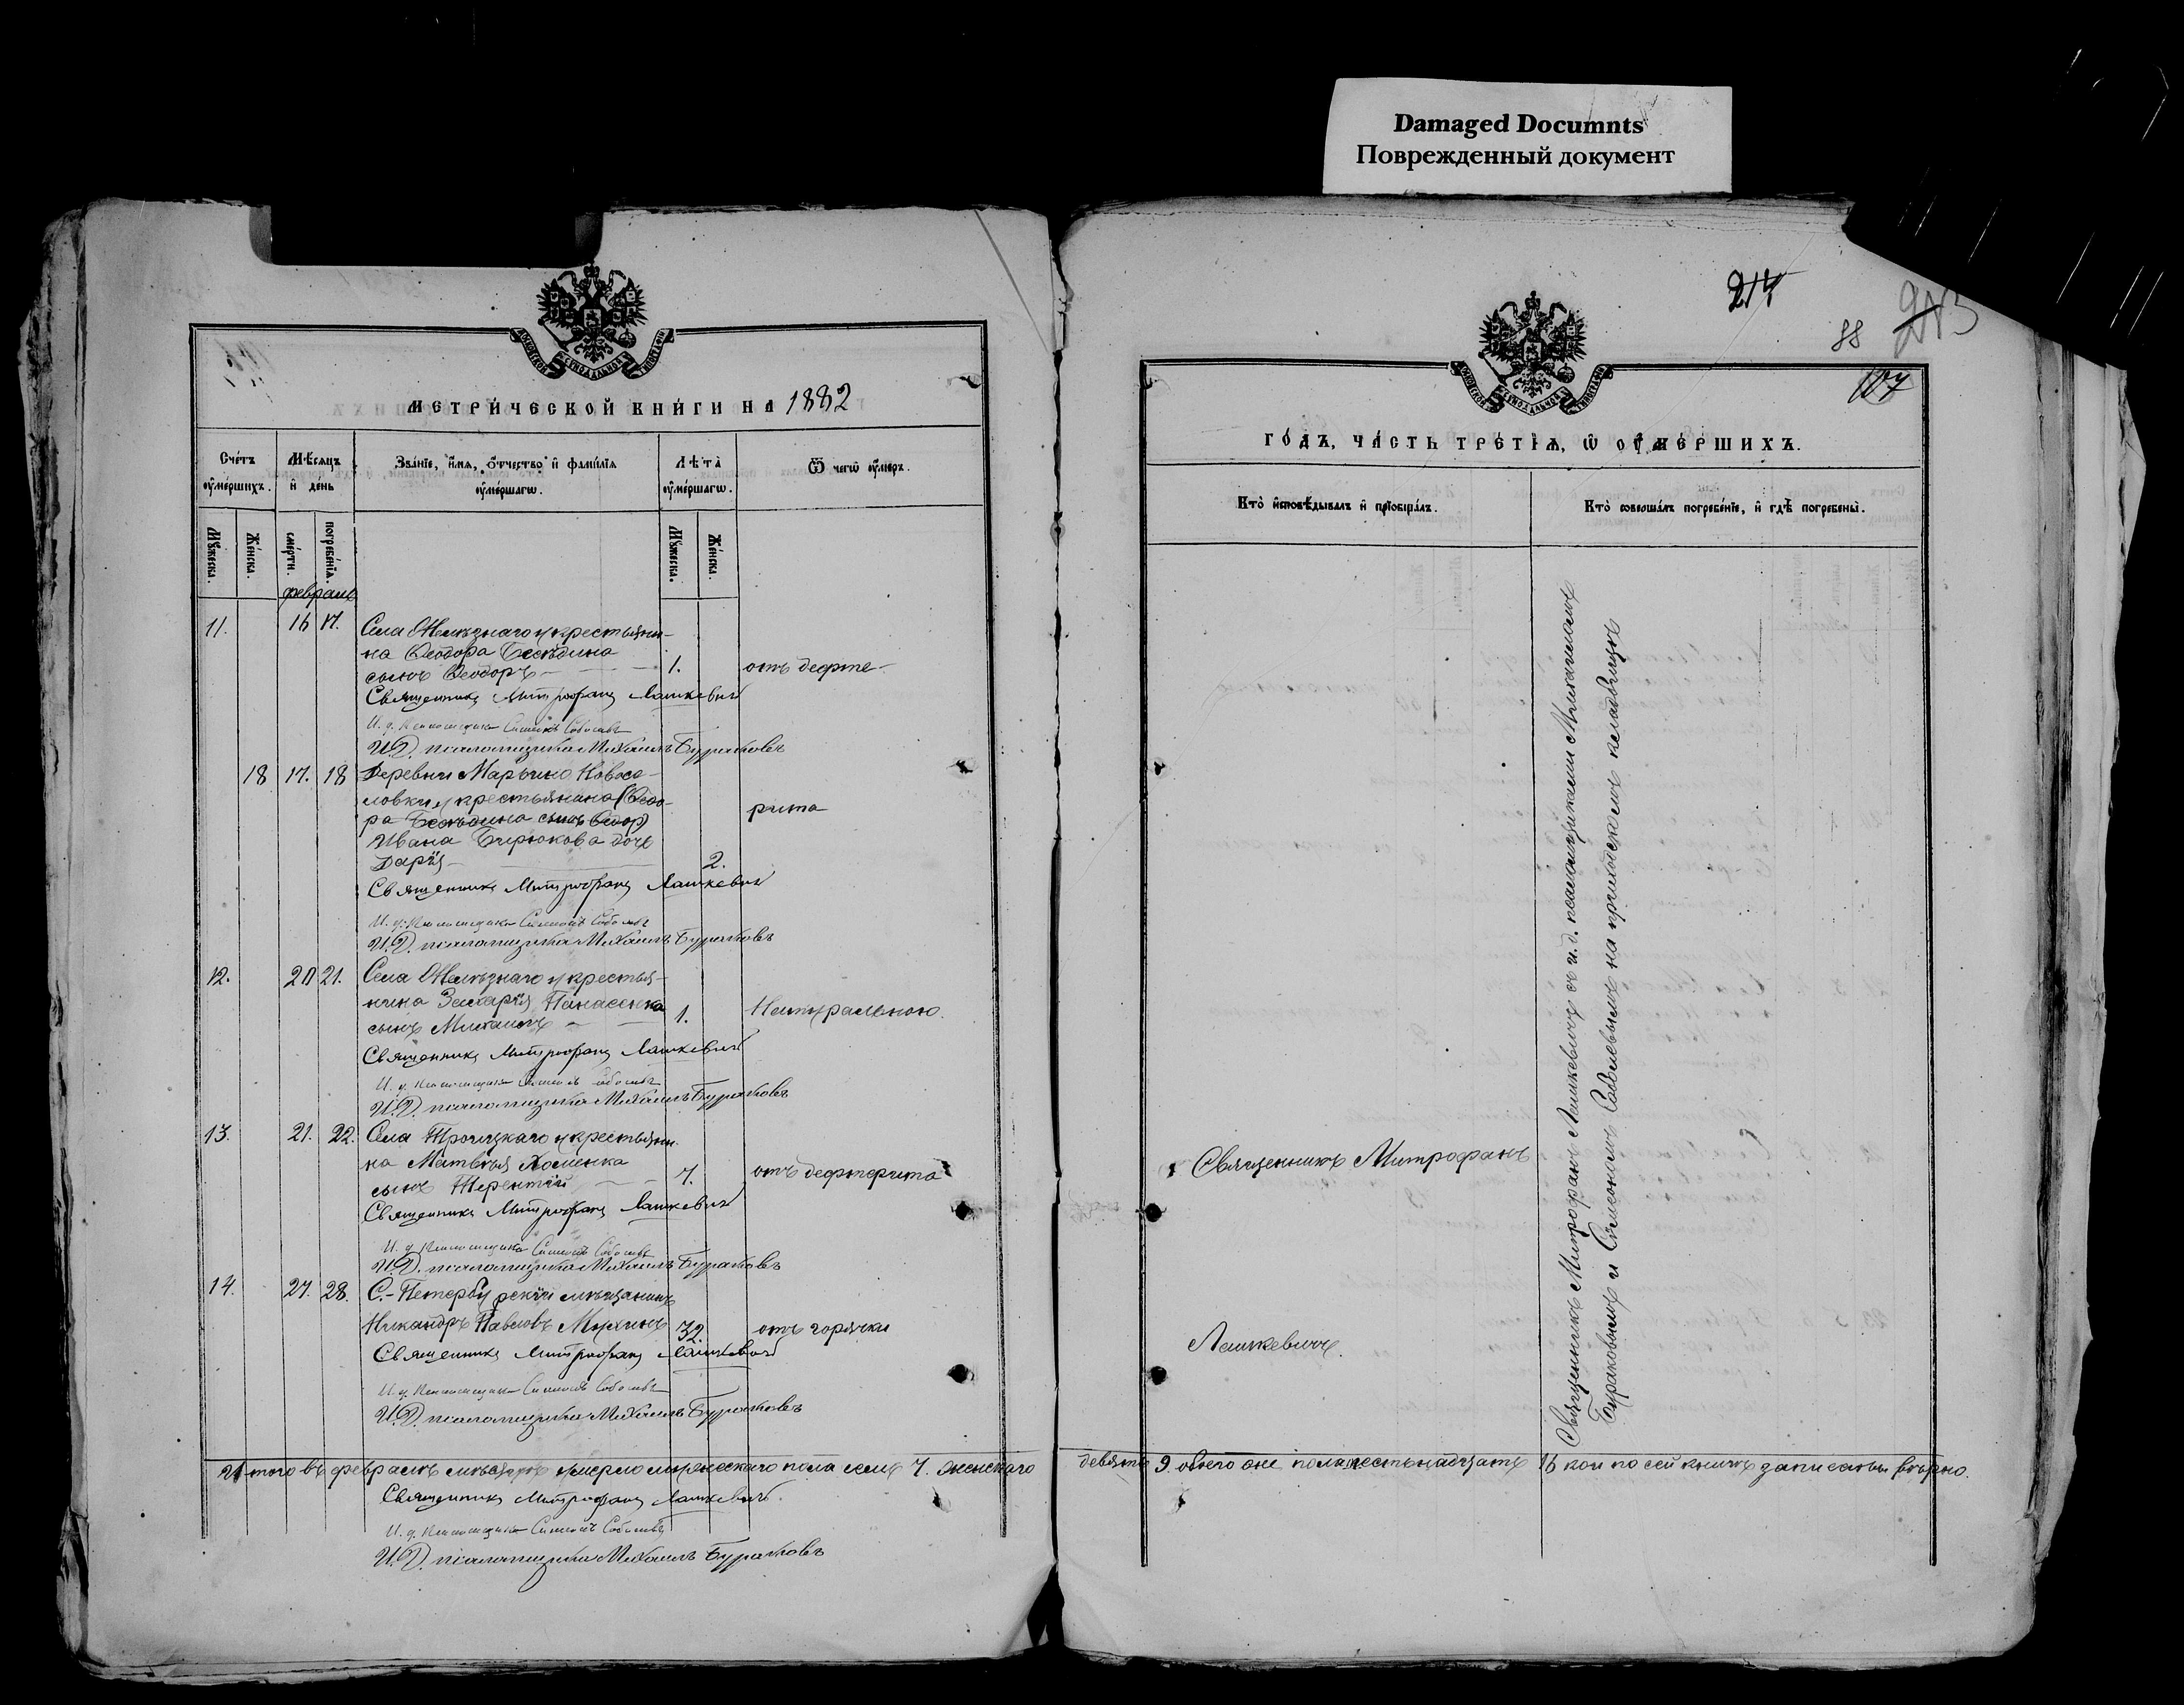 Damaged Documnts
Поврежденный документ
МЕТРИЧЕСКОЙ КНИГИ НА 1882
Счетъ оумершихъ.
Мѣсяцъ и день
Званіе, имя, отчество и фамилія оумершагѡ.
Лѣта оумершагѡ.
Ѿ чегѡ оумеръ.
Мужеска.
Женска.
смерти.
погребенія.
Мужеска.
Женска.
февраль
11. 16 17. Села Желѣзнаго крестьяни-
на Ѳеодора Бесѣдина
сынъ Ѳеодоръ 1. отъ дефте-
Священникъ Митрофанъ Лашкевичъ
И. д. псаломщика Симеонъ Соболевъ
И.Д. псаломщика Михаилъ Бураковъ
18 17. 18 Деревни Марьино Новосе-
ловки крестьянина (Ѳеодо-
ра Бесѣдина сынъ Ѳедор) рита
Ивана Бирюкова дочь
Дарія 2.
Священникъ Митрофанъ Лашкевичъ
И. д. псаломщика Симеонъ Соболевъ
И.Д. псаломщика Михаилъ Бураковъ
12. 20 21. Села Желѣзнаго крестья-
нина Захарія Панасенка
сынъ Михаилъ 1. Натуральною.
Священникъ Митрофанъ Лашкевичъ
И. д. псаломщика Симеонъ Соболевъ
И.Д. псаломщика Михаилъ Бураковъ
13. 21. 22. Села Троицкаго крестьяни-
на Матвѣя Хоменка
сынъ Терентій 7. отъ дефтерита
Священникъ Митрофанъ Лашкевичъ
И. д. псаломщика Симеонъ Соболевъ
И.Д. псаломщика Михаилъ Бураковъ
14. 27. 28. С.-Петербургскій мѣщанинъ
Никандръ Павловъ 32. отъ горячки
Священникъ Митрофанъ Лашкевичъ
И. д. псаломщика Симеонъ Соболевъ
И.Д. псаломщика Михаилъ Бураковъ
Итого въ февралѣ мѣсяцѣ умерло мужескаго пола семь 7. женскаго
Священникъ Митрофанъ Лашкевичъ.
И. д. псаломщика Симеонъ Соболевъ
И.Д. псаломщика Михаилъ Бураковъ
214
88
213
107
ГОДЪ, ЧАСТЬ ТРЕТІЯ, Ѿ ОУМЕРШИХЪ.
Кто исповѣдывалъ и пріобщалъ.
Кто совершалъ погребеніе, и гдѣ погребены.
Священникъ Митрофанъ
Лашкевичъ.
Священникъ Митрофанъ Лашкевичъ съ и. д. псаломщиками Михаиломъ
Бураковымъ и Симеономъ Соболевымъ на приходскомъ кладбищѣ
девять 9. обоего же пола шестьнадцать 16 кои по сей книгѣ записаны вѣрно.